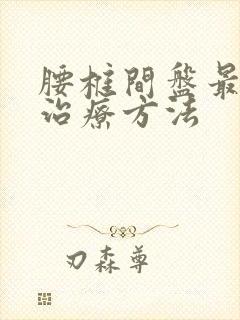 腰椎間盤最
治療方法
刃森尊